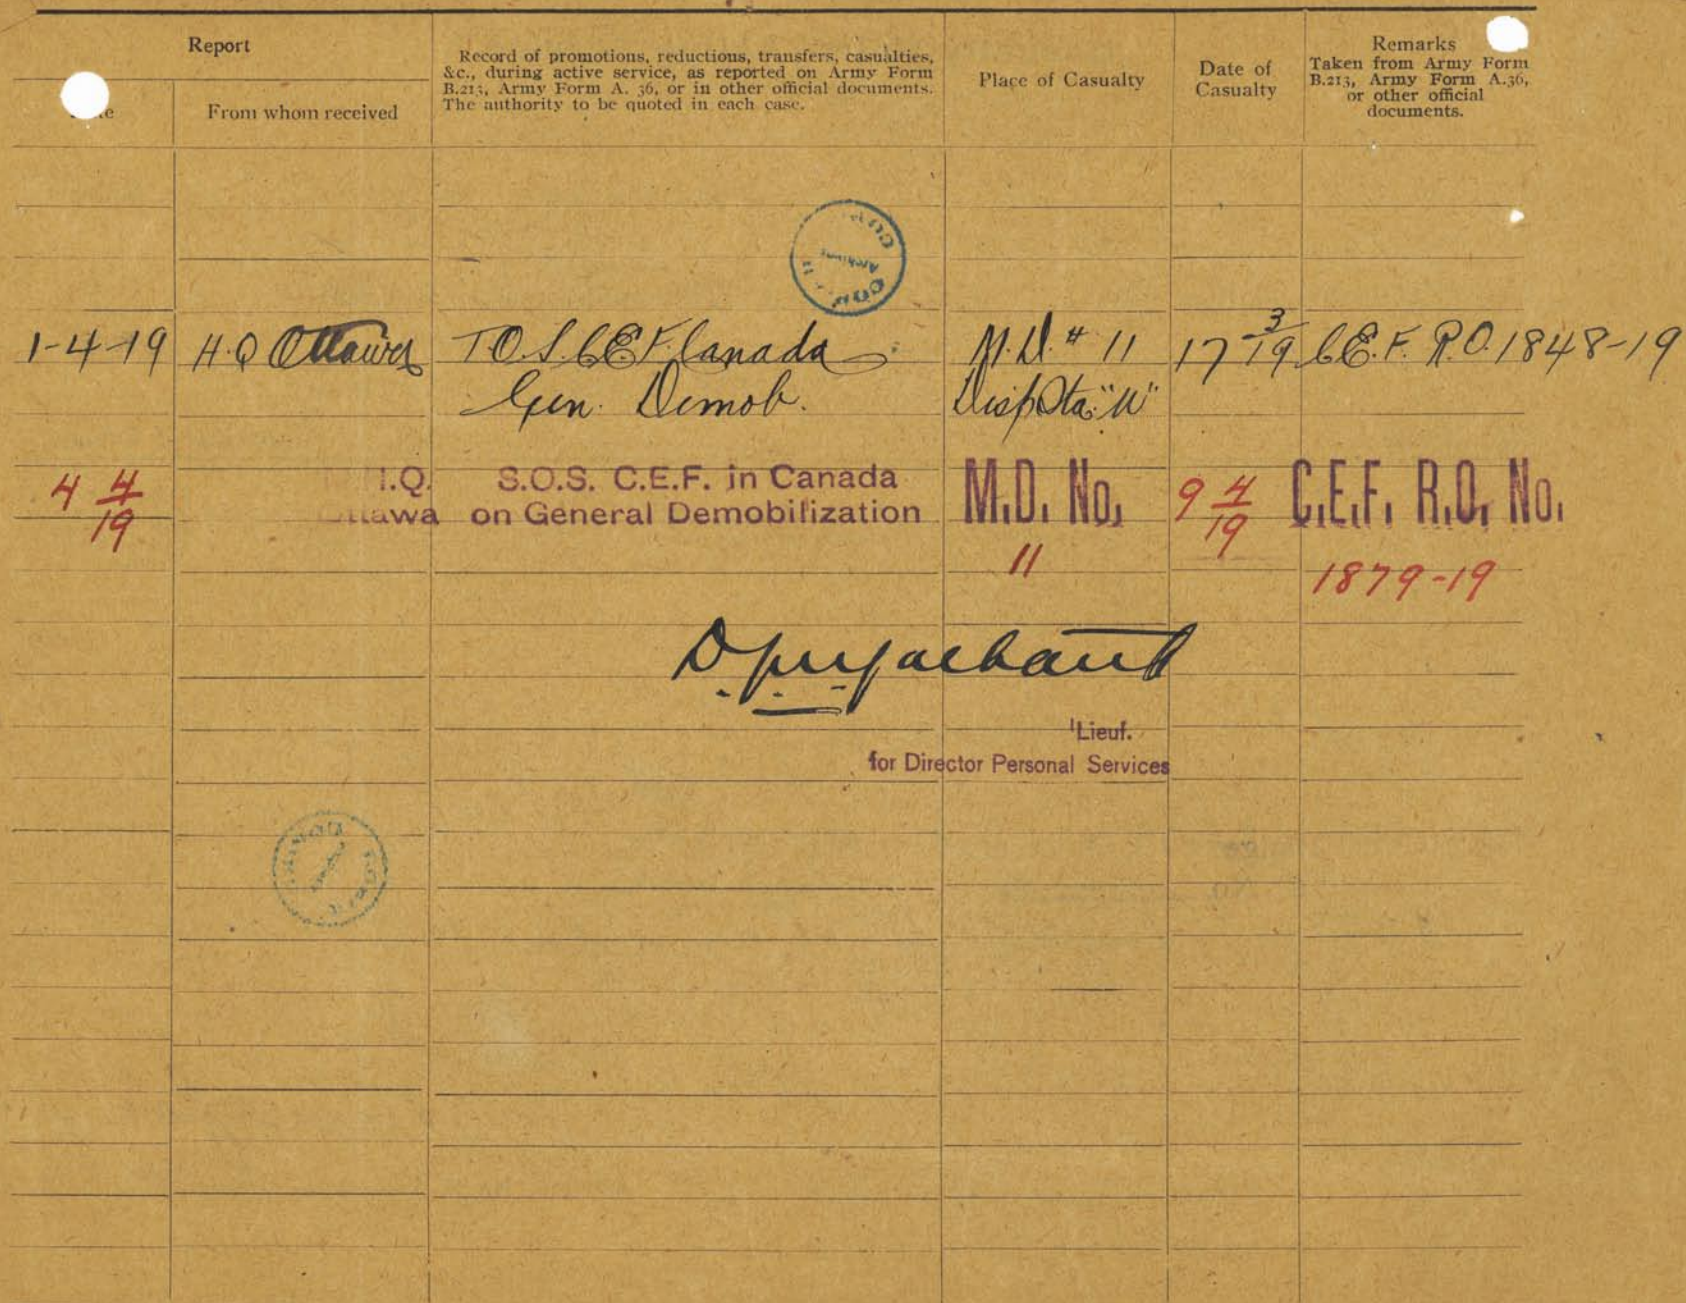 Report
Record of promotions, reductions, transfers, casualties,
&c., during active service, as reported on Army Form
B.213, Army Form A. 36, or in other official documents.
The authority to be quoted in each case.
Place of Casualty
Date of
Casualty
Remarks
Taken from Army Form
B.213, Army Form A.36,
or other official
documents.
From whom received
1-4-19 H.Q Ottawa T.O.S. C.E.F. Canada M.D. # 11 17 3/19 C.E.F. R.O. 1848-19
Gen. Demob. Disp Sta "M"
4 4/19 H.Q. S.O.S. C.E.F. in Canada M.D. No. 9 4/19 C.E.F. R.O. No.
Ottawa on General Demobilization
11 1879-19
Lieut.
for Director Personal Services